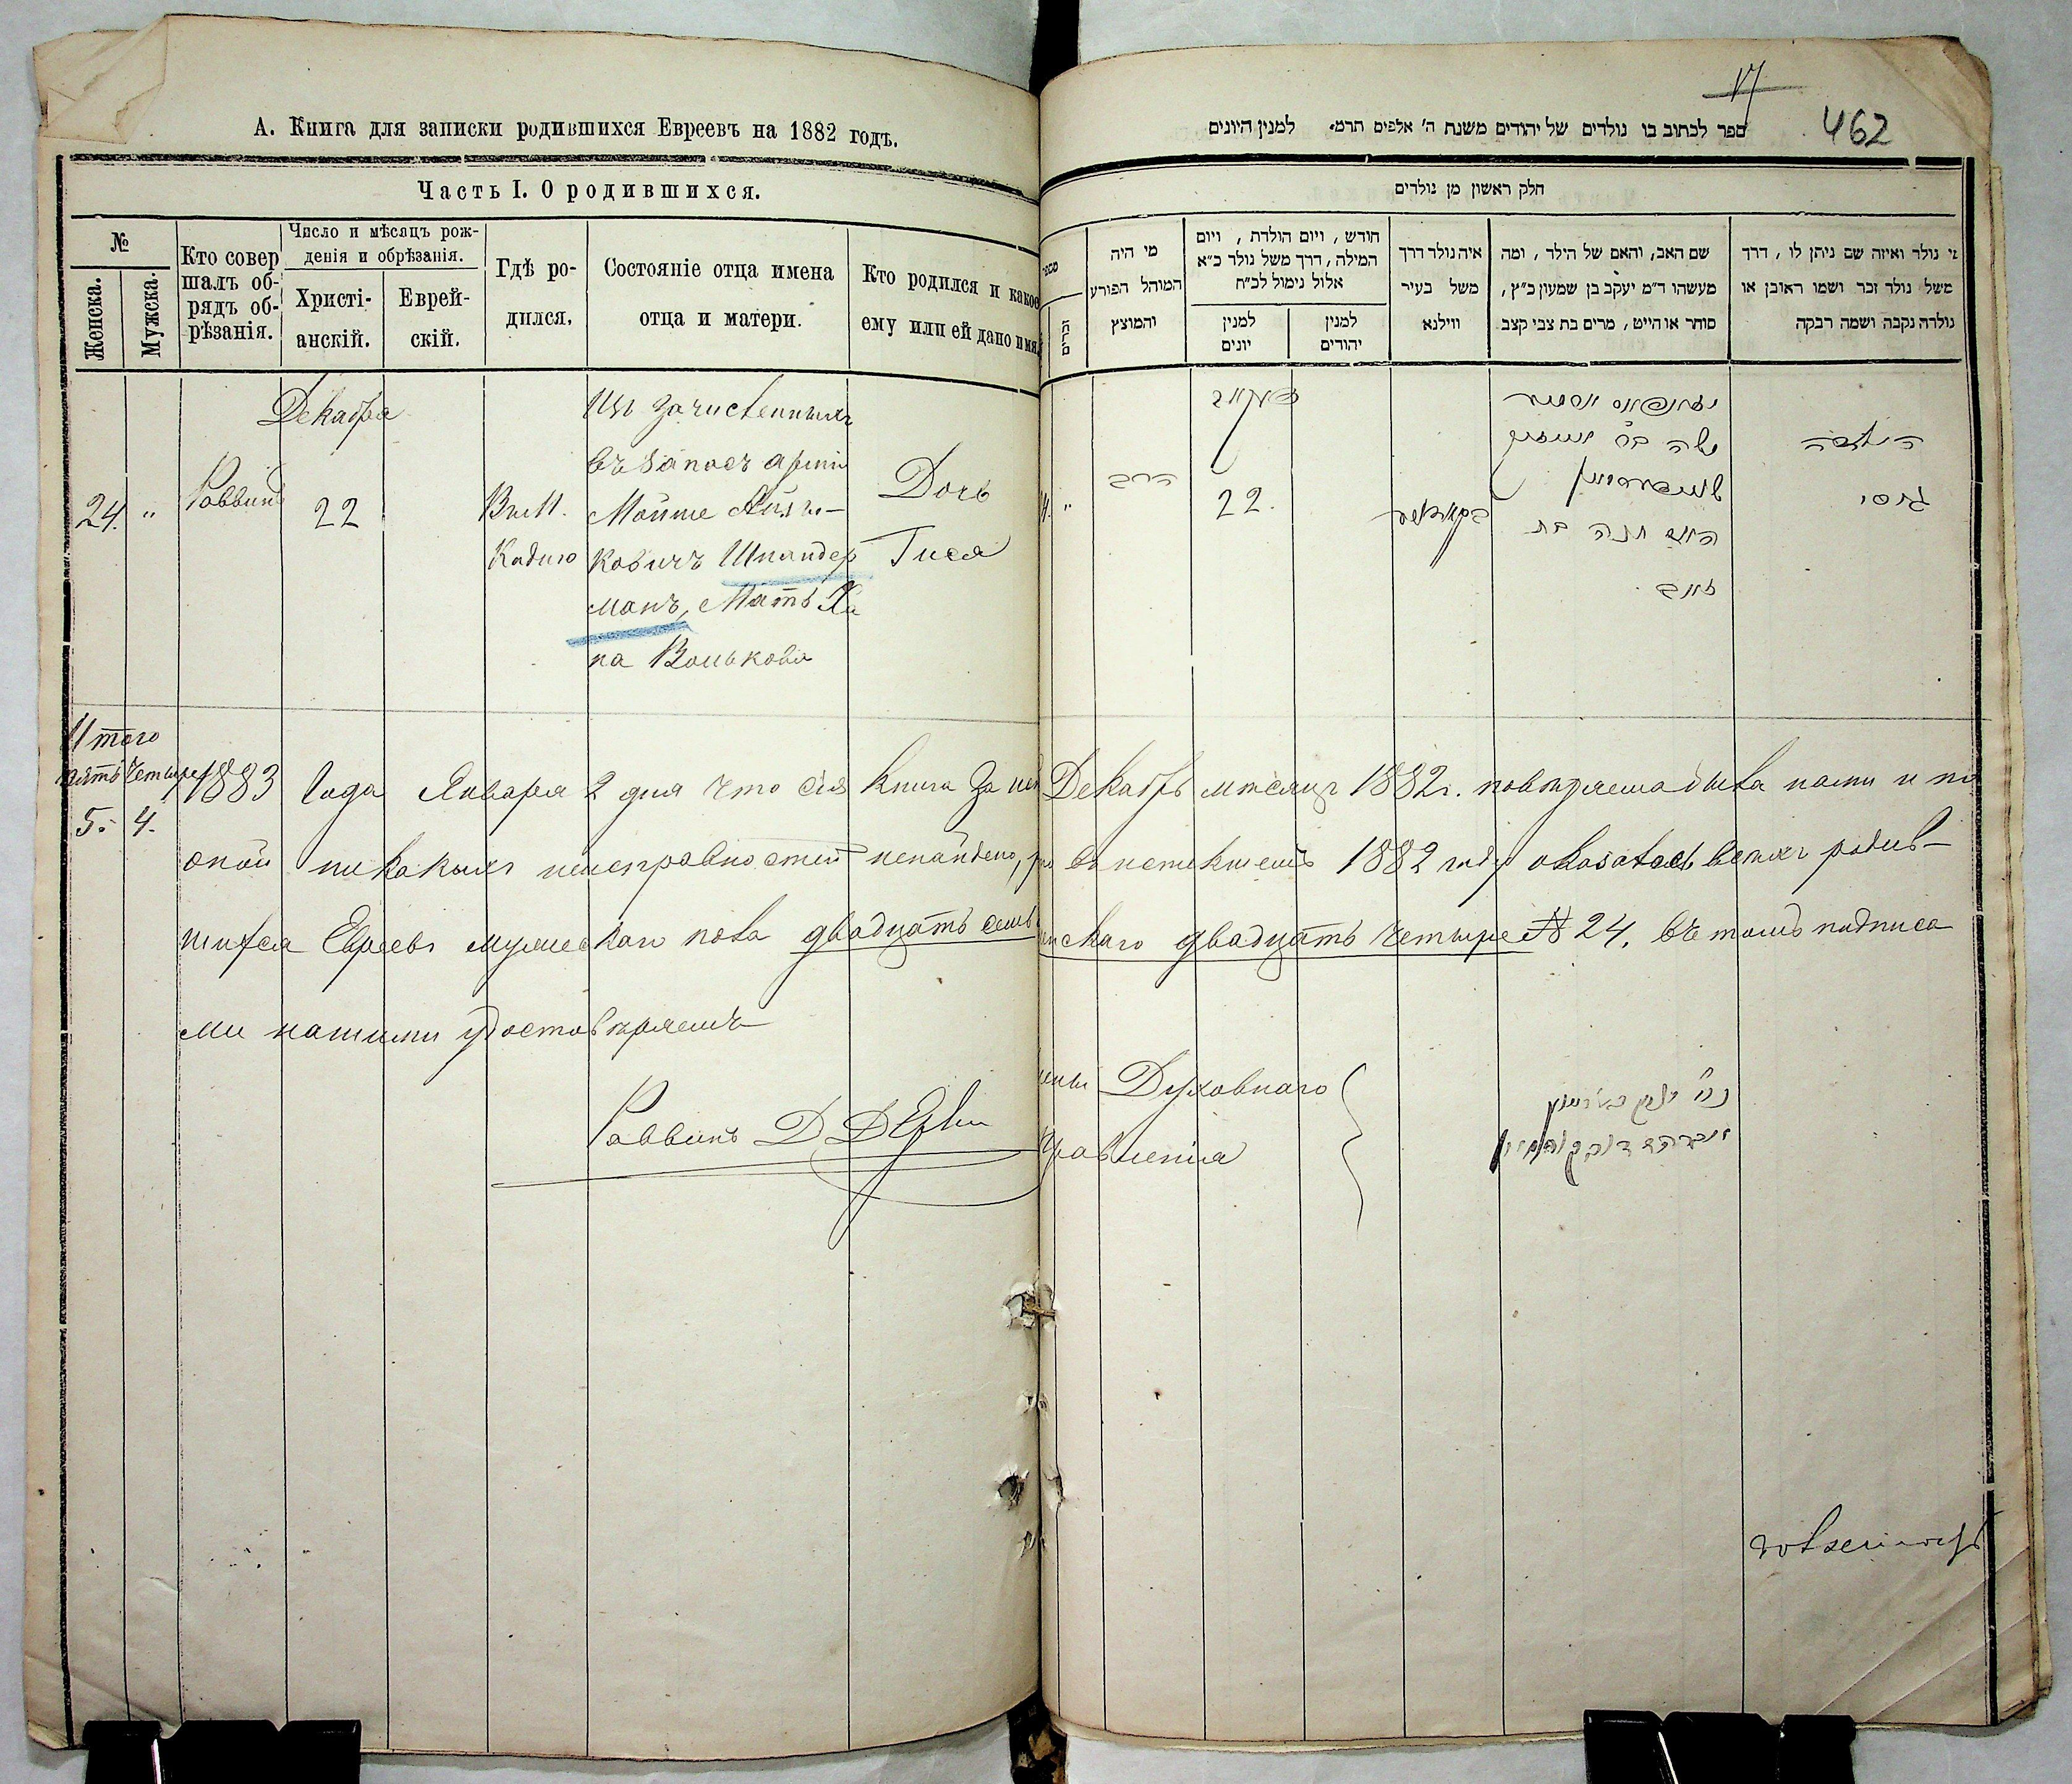 А. Книга для записки родившихся Евреевъ на 1882 годъ.
Часть I. О родившихся.
№
Женска.
Мужска.
Кто совер
шалъ об-
рядъ об-
рѣзанія.
Число и мѣсяцъ рож-
денія и обрѣзанія.
Христі-
анскій.
Еврей-
скій.
Гдѣ ро-
дился.
Состояніе отца имена
отца и матери.
Кто родился и какое
ему или ей дано имя
Декабря
24. "
Раввинъ
22
Кадино
Изъ зачисленныхъ
въ запасъ арміи
Мойше
ковичъ Шпандер
манъ, Мать Ха
на Волькова
Дочь
Гися
Итого
пять четыре
5. 4.
1883 Года Января 2 дня что сія книга За
оной никакихъ неисправностей ненайдено,
шихся Евреевъ мужескаго пола двадцать семь
ми нашими удостовѣряемъ
Раввинъ Д
17
462
ספר לכתוב בו נולדים של יהודים משנת ה' אלפים תרמ' למנין היונים
חלק ראשון מן נולדים
מי נולד ואיזה שם ניתן לו, דרך
משל נולד זכר ושמו ראובן או
נולדה נקבה ושמה רבקה
שם האב, והאם של הילד, ומה
מעשהו ד"מ יעקב בן שמעון כ"ץ,
סוחר או חייט, מרים בת צבי קצב
איה נולד דרך
משל בעיר
ווילנא
חודש, ויום הולדת, ויום
המילה, דרך משל נולד כ"א
אלול נימול לכ"ח
למנין
יהודים
למנין
יונים
מי היה
המוהל הפורע
והמוצץ
זכרים
הילדה
גיסי
משה
האם חנה בת
זאב
22.
הרב
"
Декабрь мѣсяцъ 1882г. повѣряема была нами и по
въ истекшемъ 1882 году оказалось всѣхъ родив-
скаго двадцать четыре № 24. въ томъ подписа
Духовнаго
Правленія